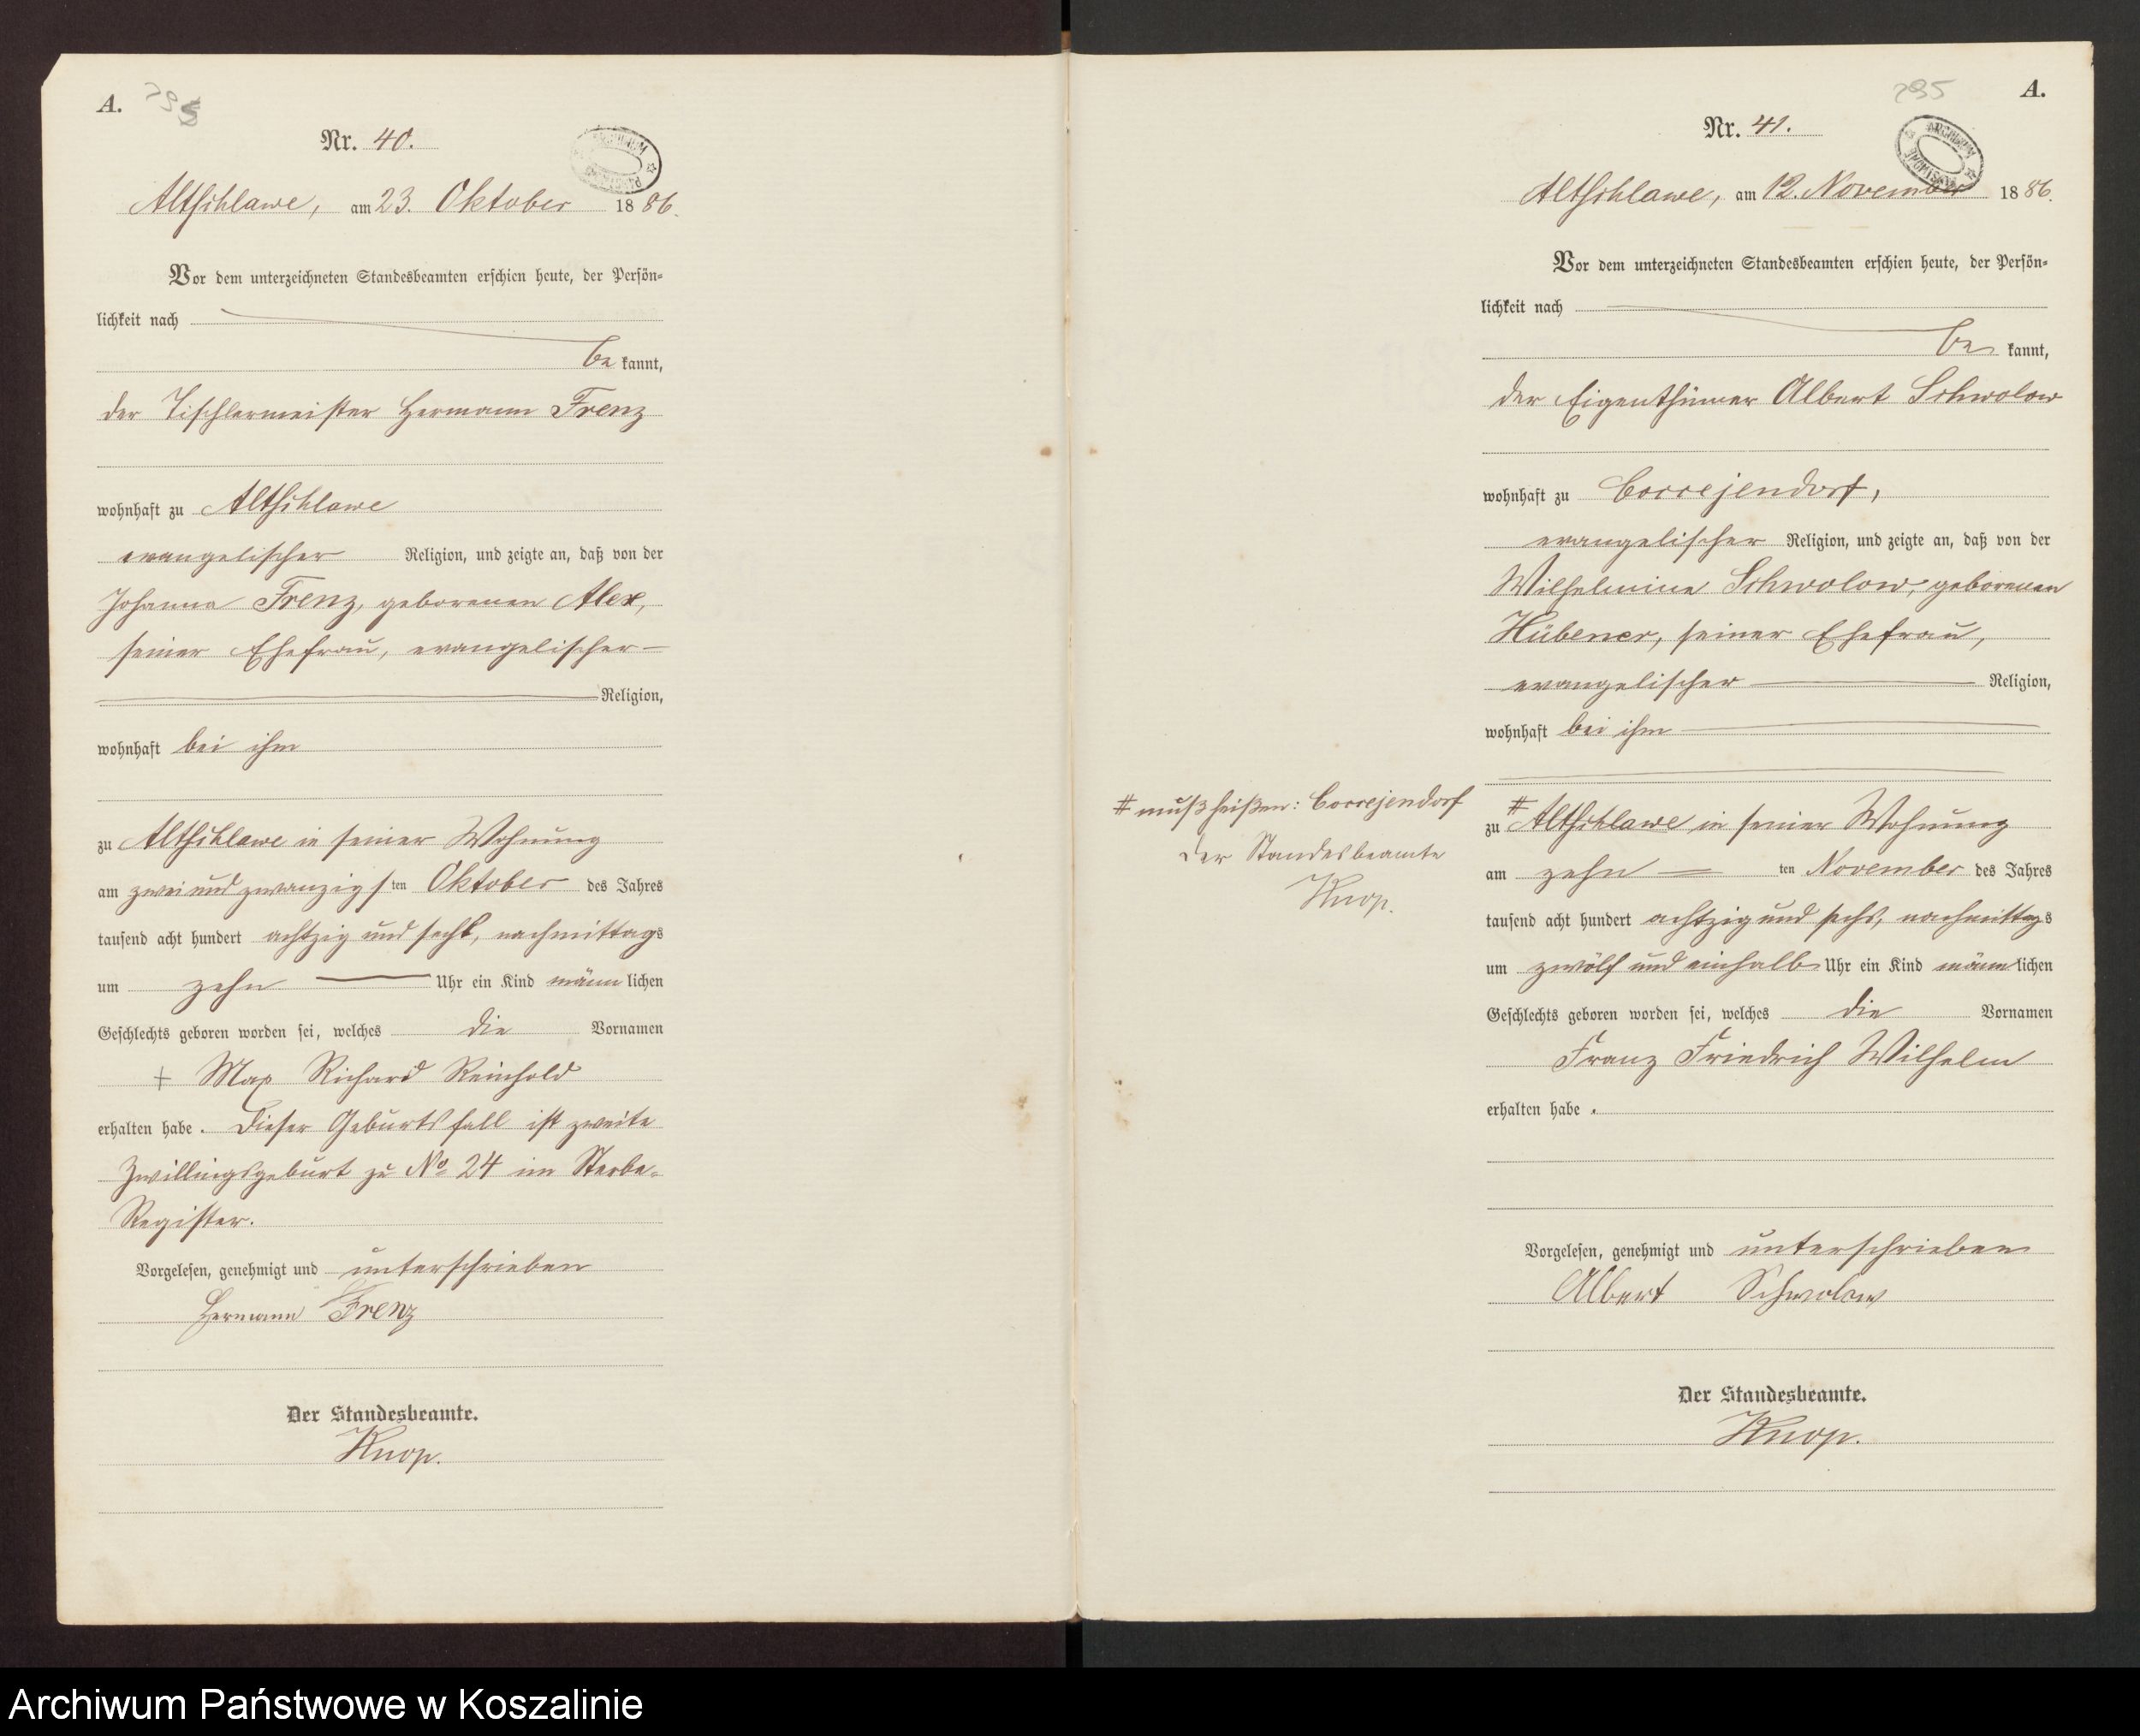 A.
Nr. 40.
Altschlawe, am 23. Oktober 1886.
Vor dem unterzeichneten Standesbeamten erschien heute, der Persön-
lichkeit nach
be kannt,
der Tischlermeister Hermann Frenz
wohnhaft zu Altschlawe
evangelischer Religion, und zeigte an, daß von der
Johanna Frenz, geborenen Alex,
seiner Ehefrau, evangelischer
Religion,
wohnhaft bei ihm
zu Altschlawe in seiner Wohnung
am zwei und zwanzigsten Oktober des Jahres
tausend acht hundert achtzig und sechs, nachmittags
um zehn Uhr ein Kind männlichen
Geschlechts geboren worden sei, welches die Vornamen
+ Max Richard Reinhold
erhalten habe. Dieser Geburtsfall ist zweite
Zwillingsgeburt zu No 24 im Sterbe-
Register.
Vorgelesen, genehmigt und unterschrieben
Hermann Frenz
Der Standesbeamte.
Knop.
295
A.
Nr. 41.
ARCHIWUM
Altschlawe, am 12. November 1886.
Vor dem unterzeichneten Standesbeamten erschien heute, der Persön-
lichkeit nach
be kannt,
der Eigenthümer Albert Schwolow
wohnhaft zu Coccejendorf,
evangelischer Religion, und zeigte an, daß von der
Wilhelmine Schwolow, geborenen
Hübener, seiner Ehefrau,
evangelischer Religion,
wohnhaft bei ihm
# muß heißen: Coccejendorf
Der Standesbeamte
Knop.
zu # Altschlawe in seiner Wohnung
am zehn ten November des Jahres
tausend acht hundert achtzig und sechs, nachmittags
um zwölf und einhalb Uhr ein Kind männlichen
Geschlechts geboren worden sei, welches die Vornamen
Franz Friedrich Wilhelm
erhalten habe.
Vorgelesen, genehmigt und unterschrieben
Albert Schwolow
Der Standesbeamte.
Knop.
Archiwum Państwowe w Koszalinie